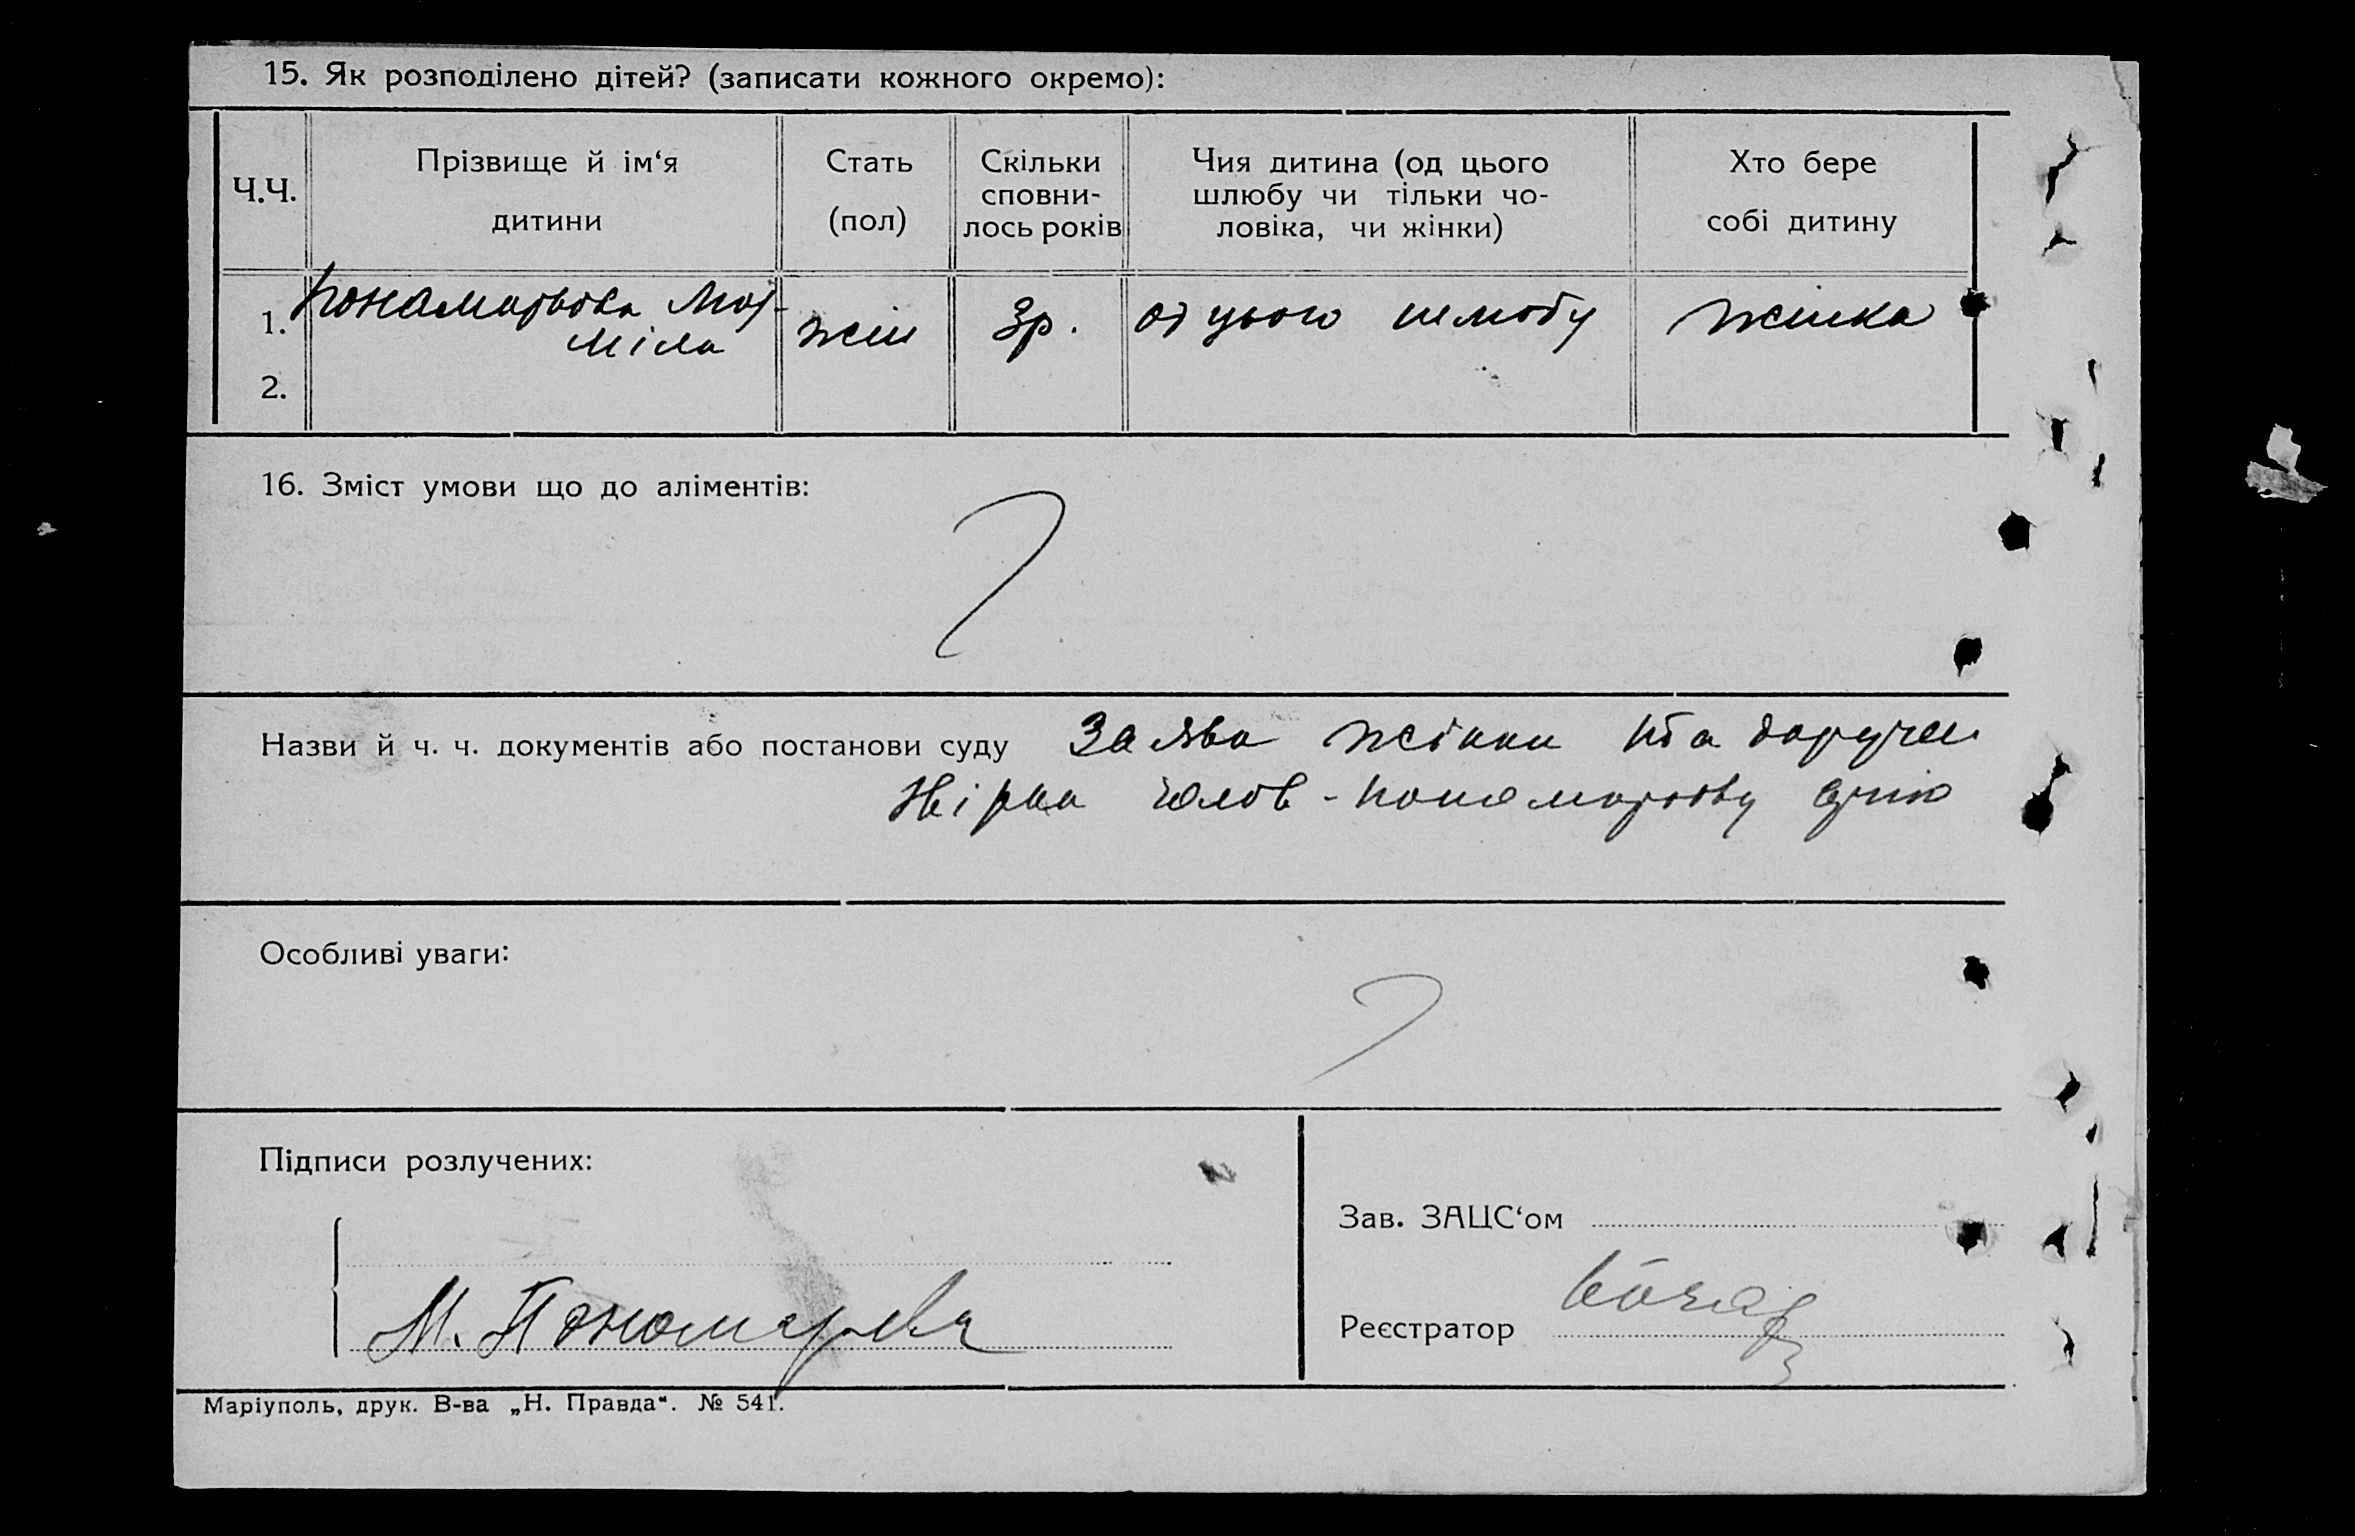 15. Як розподілено дітей? (записати кожного окремо):
Ч.Ч.
Прізвище й ім‘я
дитини
Стать
(пол)
Скільки
сповни-
лось років
Чия дитина (од цього
шлюбу чи тільки чо-
ловіка, чи жінки)
Хто бере
собі дитину
1. Понамарьова
міла
жін
3р.
од цього шлюбу
жінка
2.
16. Зміст умови що до аліментів:
Назви й ч. ч. документів або постанови суду Заява жінки та
чолов - Понамарьову
Особливі уваги:
Підписи розлучених:
М. Пономарева
Зав. ЗАЦС‘ом
Реєстратор
Маріуполь, друк. В-ва „Н. Правда“. № 541.